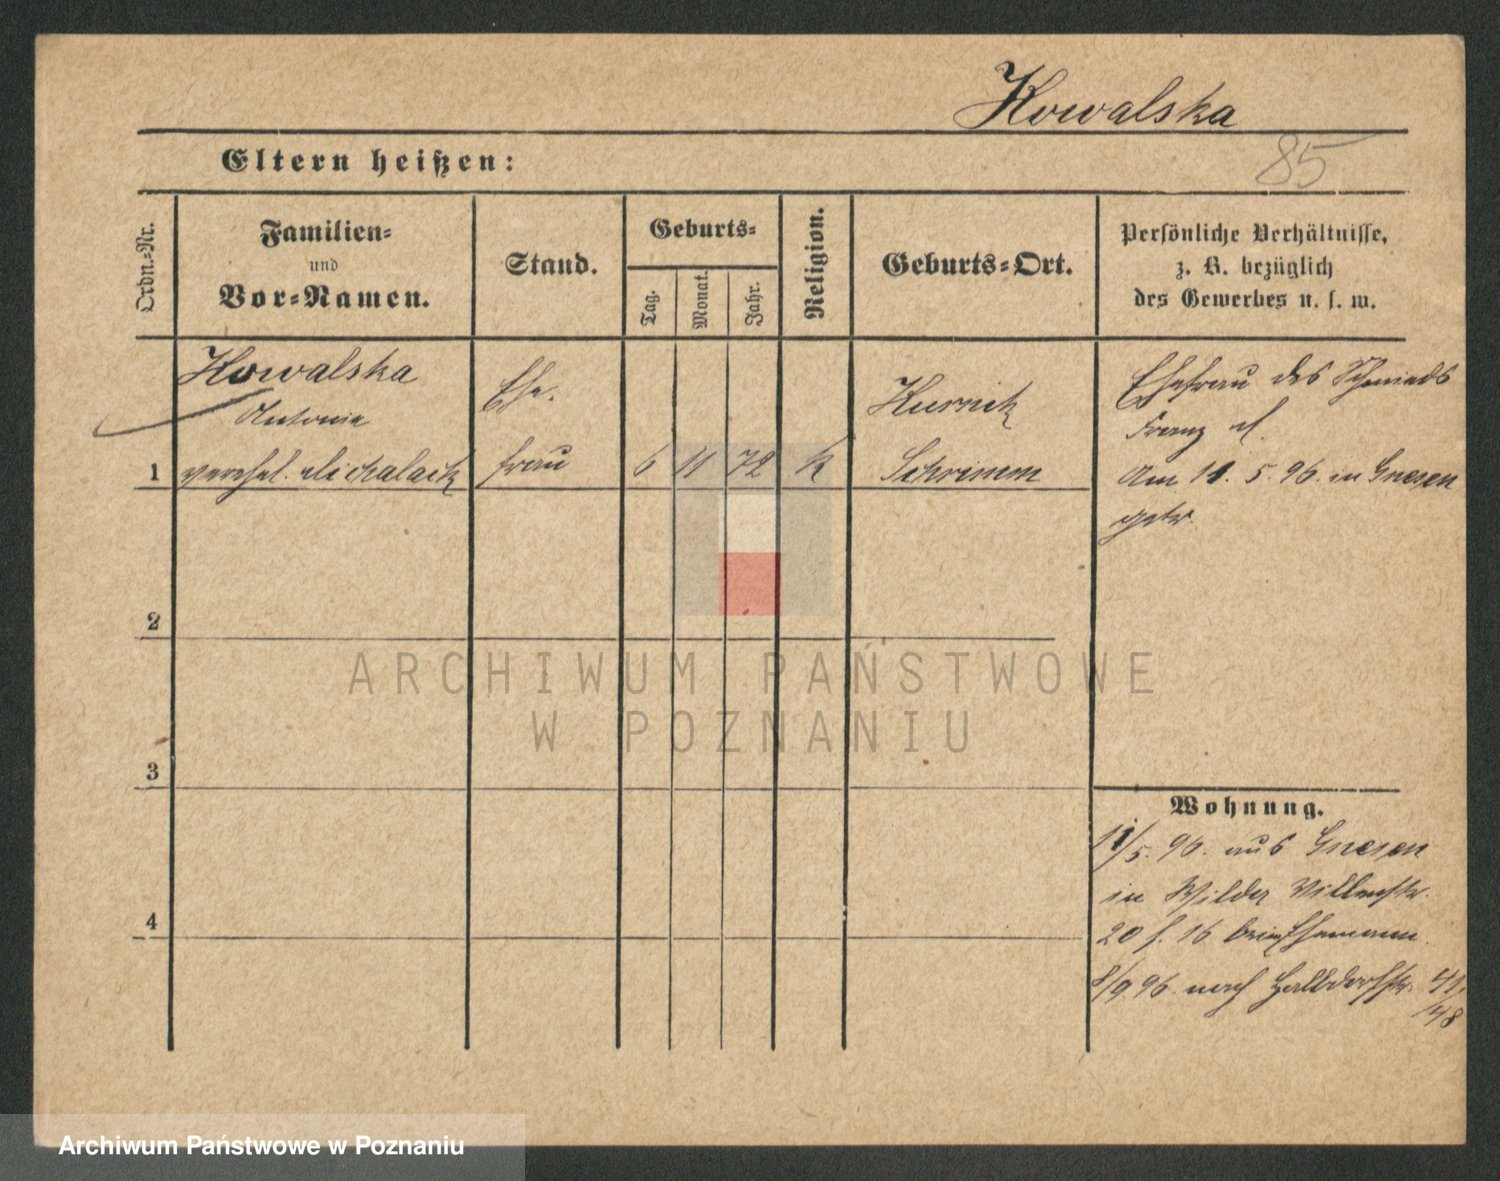 Kowalska
85
Eltern heißen:
Ordn.-Nr.
Familien-
und
Vor-Namen.
Stand.
Geburts-
Tag.
Monat.
Jahr.
Religion.
Geburts-Ort.
Persönliche Verhältnisse,
z. B. bezüglich
des Gewerbes u. s. w.
Kowalska
Antonie
1 verehel. Michalack
Ehe-
frau
6 11 72 K
Kurnik
Schrimm
Ehefrau des Schmieds
Franz M.
Am 11. 5. 96. in Gnesen
getr.
2
3
4
Wohnung.
11/5. 96. aus Gnesen
in Wilda
20 b. Ehemann.
8/9 96. nach Halbdorfstr.
ARCHIWUM PAŃSTWOWE
W POZNANIU
Archiwum Państwowe w Poznaniu